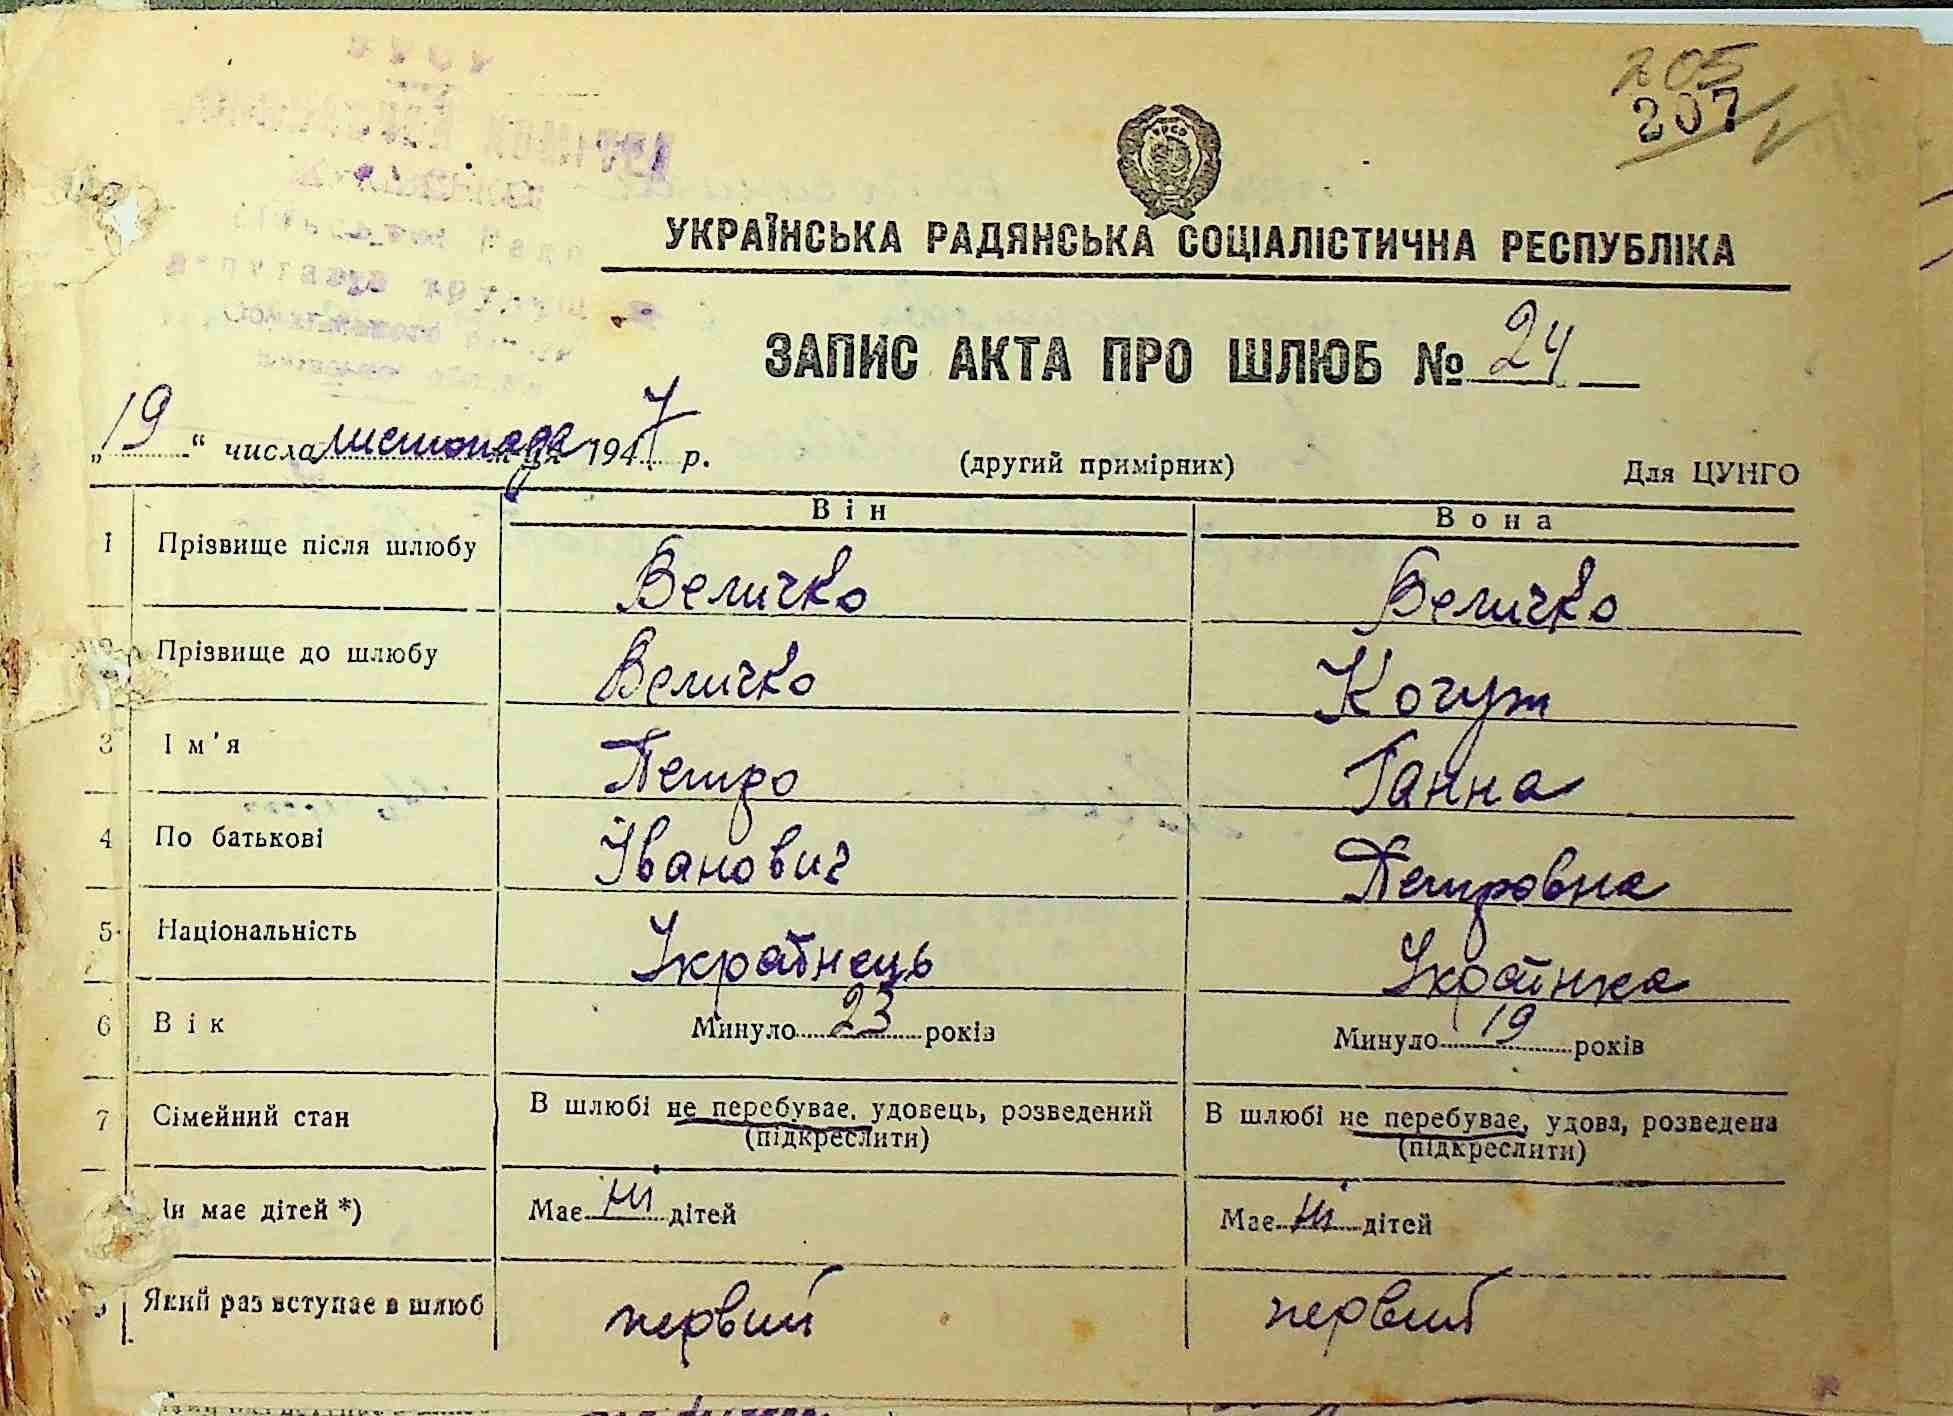 205
207
УКРАЇНСЬКА РАДЯНСЬКА СОЦІАЛІСТИЧНА РЕСПУБЛІКА
ЗАПИС АКТА ПРО ШЛЮБ № 24
„19“ числа листопада 1947 р. (другий примірник) Для ЦУНГО
Він Вона
1 Прізвище після шлюбу Величко Величко
Прізвище до шлюбу Величко Кочут
3 Ім'я Петро Ганна
4 По батькові Іванович Петровна
5 Національність Українець Українка
6 Вік Минуло 23 років Минуло 19 років
7 Сімейний стан В шлюбі не перебуває, удовець, розведений В шлюбі не перебуває, удова, розведена
(підкреслити) (підкреслити)
Чи має дітей *) Має ні дітей Має ні дітей
Який раз вступає в шлюб первий первий